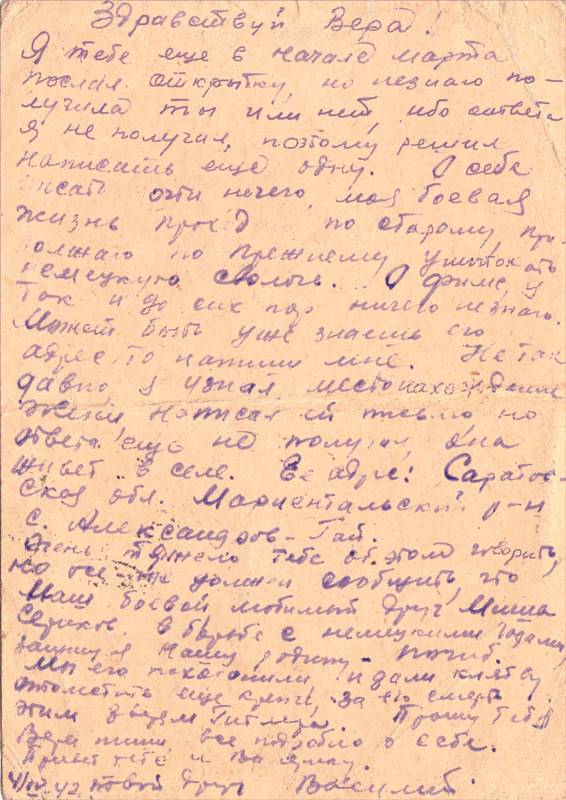 Здравствуй Вера!
Я тебе еще в начале марта
послал открытку, но незнаю по-
лучила ты или нет, ибо ответа
я не получил, поэтому решил
написать еще одну. О себе
писать очти нечего, моя боевая
жизнь проход по старому, про-
должаю по прежнему уничтожать
немецкую сволочь. О Фиме, я
так и до сих пор ничего незнаю.
Может быть уже знаешь его
адрес то напиши мне. Не так
давно я узнал местонахождение
Жени написал ей письмо но
ответа еще не получил, она
живет в селе. Ее адрес: Саратов-
ская обл. Мариентальский р-н
с. Александров-Гай.
Очень тяжело тебе об этом говорить,
но все-же должен сообщить что
наш боевой любимый друг Миша
в борьбе с немецкими гадами,
защищая нашу родину - погиб.
Мы его похоронили и дали клятву
отомстить еще крепче за его смерть
этим Гитлера. Прошу тебя
Вера пиши все подробно о себе.
Привет тебе и
4/IV 42. твой друг Василий.